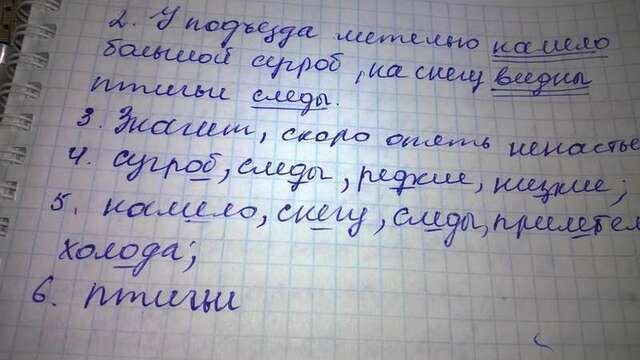 2. У подъезда метелью намело
большой сугроб, на снегу видны
птичьи следы.
3. Значит, скоро опять ненастье
4. сугроб, следы, редкие, низкие;
5. намело, снегу, следы, прилетел
холода;
6. птичьи